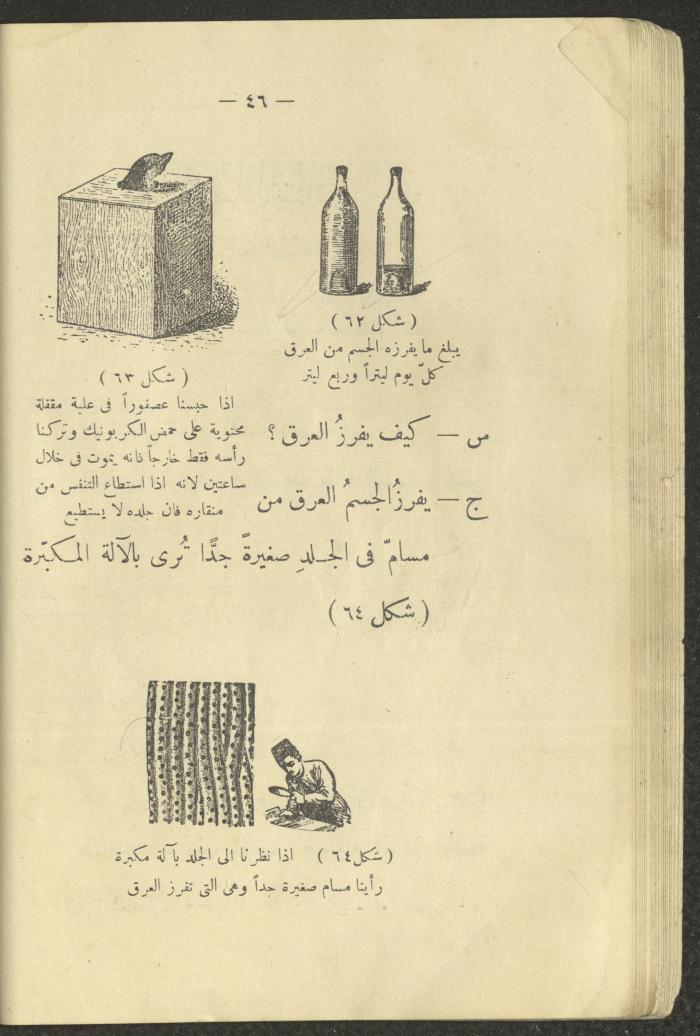 — ٤٦ —
( شكل ٦٢ )
يبلغ ما يفرزه الجسم من العرق
كلّ يوم ليتراً وربع ليتر
( شكل ٦٣ )
اذا حبسنا عصفوراً فى علبة مقفلة
محتوية على حمض الكربونيك وتركنا
رأسه فقط خارجاً فانه يموت فى خلال
ساعتين لانه اذا استطاع التنفس من
منقاره فان جلده لا يستطيع
س — كيف يفرزُ العرق ؟
ج — يفرزُ الجسمُ العرق من
مسامّ فى الجلدِ صغيرةً جدًّا تُرى بالآلة المكبّرة
( شكل ٦٤ )
( شكل ٦٤ ) اذا نظرنا الى الجلد بآلة مكبرة
رأينا مسام صغيرة جداً وهى التى تفرز العرق